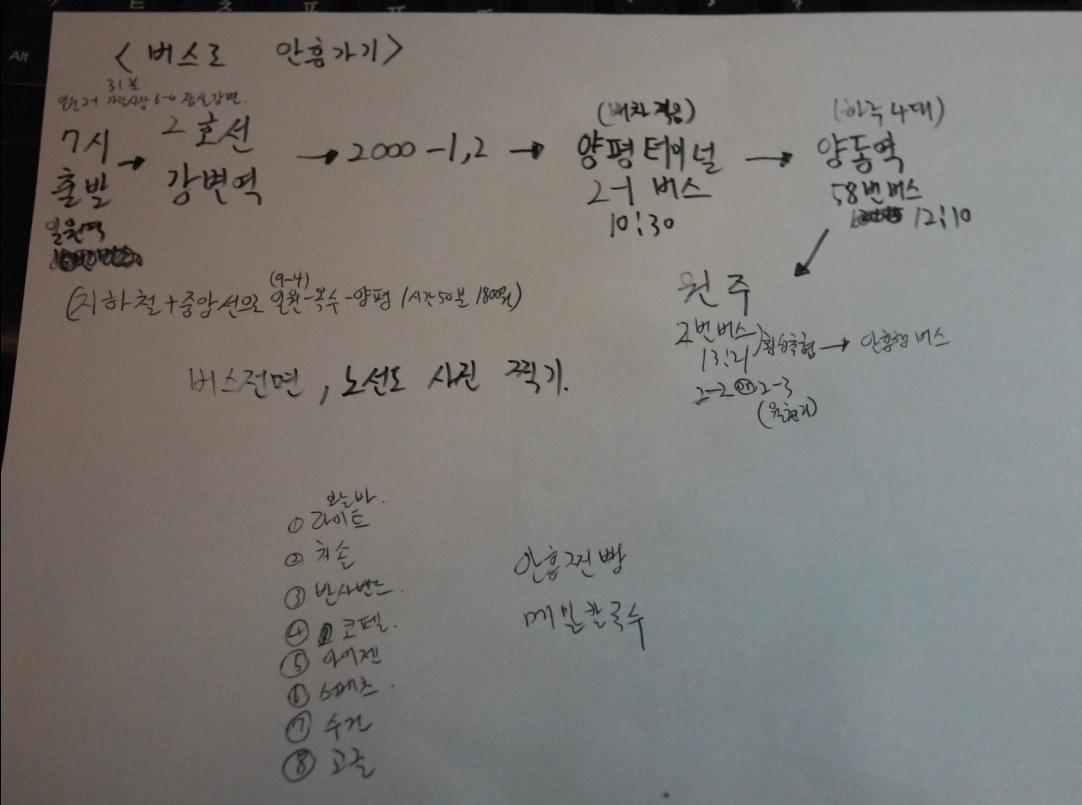 Alt
<버스로 안흥가기>
31분
7시 출발
일원역
→ 2호선 강변역
→ 2000-1,2
→ (배차 적음)
양평터미널
2-1 버스
10:30
→ (하루 4대)
양동역
58번버스
12:10
원주
2번버스
13:21
→ 안흥행 버스
2-2 or 2-3
(지하철+중앙선으로 (9-4) 일원-옥수-양평 1시간50분 1800원)
버스전면, 노선도 사진 찍기.
① 라이트
② 치솔
③ 반사밴드
④ 코펠.
⑤ 아이젠
⑥ 스패츠.
⑦ 수건
⑧ 고글
안흥찐빵
메밀칼국수